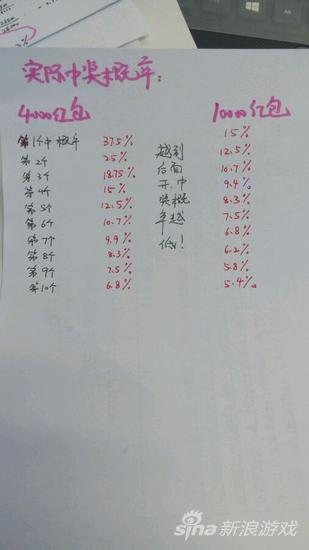 实际中奖概率:
4000红包
10000红包
第1个中概率 37.5% 15%
第2个 25% 12.5%
第3个 18.75% 10.7%
第4个 15% 9.4%
第5个 12.5% 8.3%
第6个 10.7% 7.5%
第7个 9.9% 6.8%
第8个 8.3% 6.2%
第9个 7.5% 5.8%
第10个 6.8% 5.4%。
越到
后面
开中
奖概
率越
低!
sina 新浪游戏